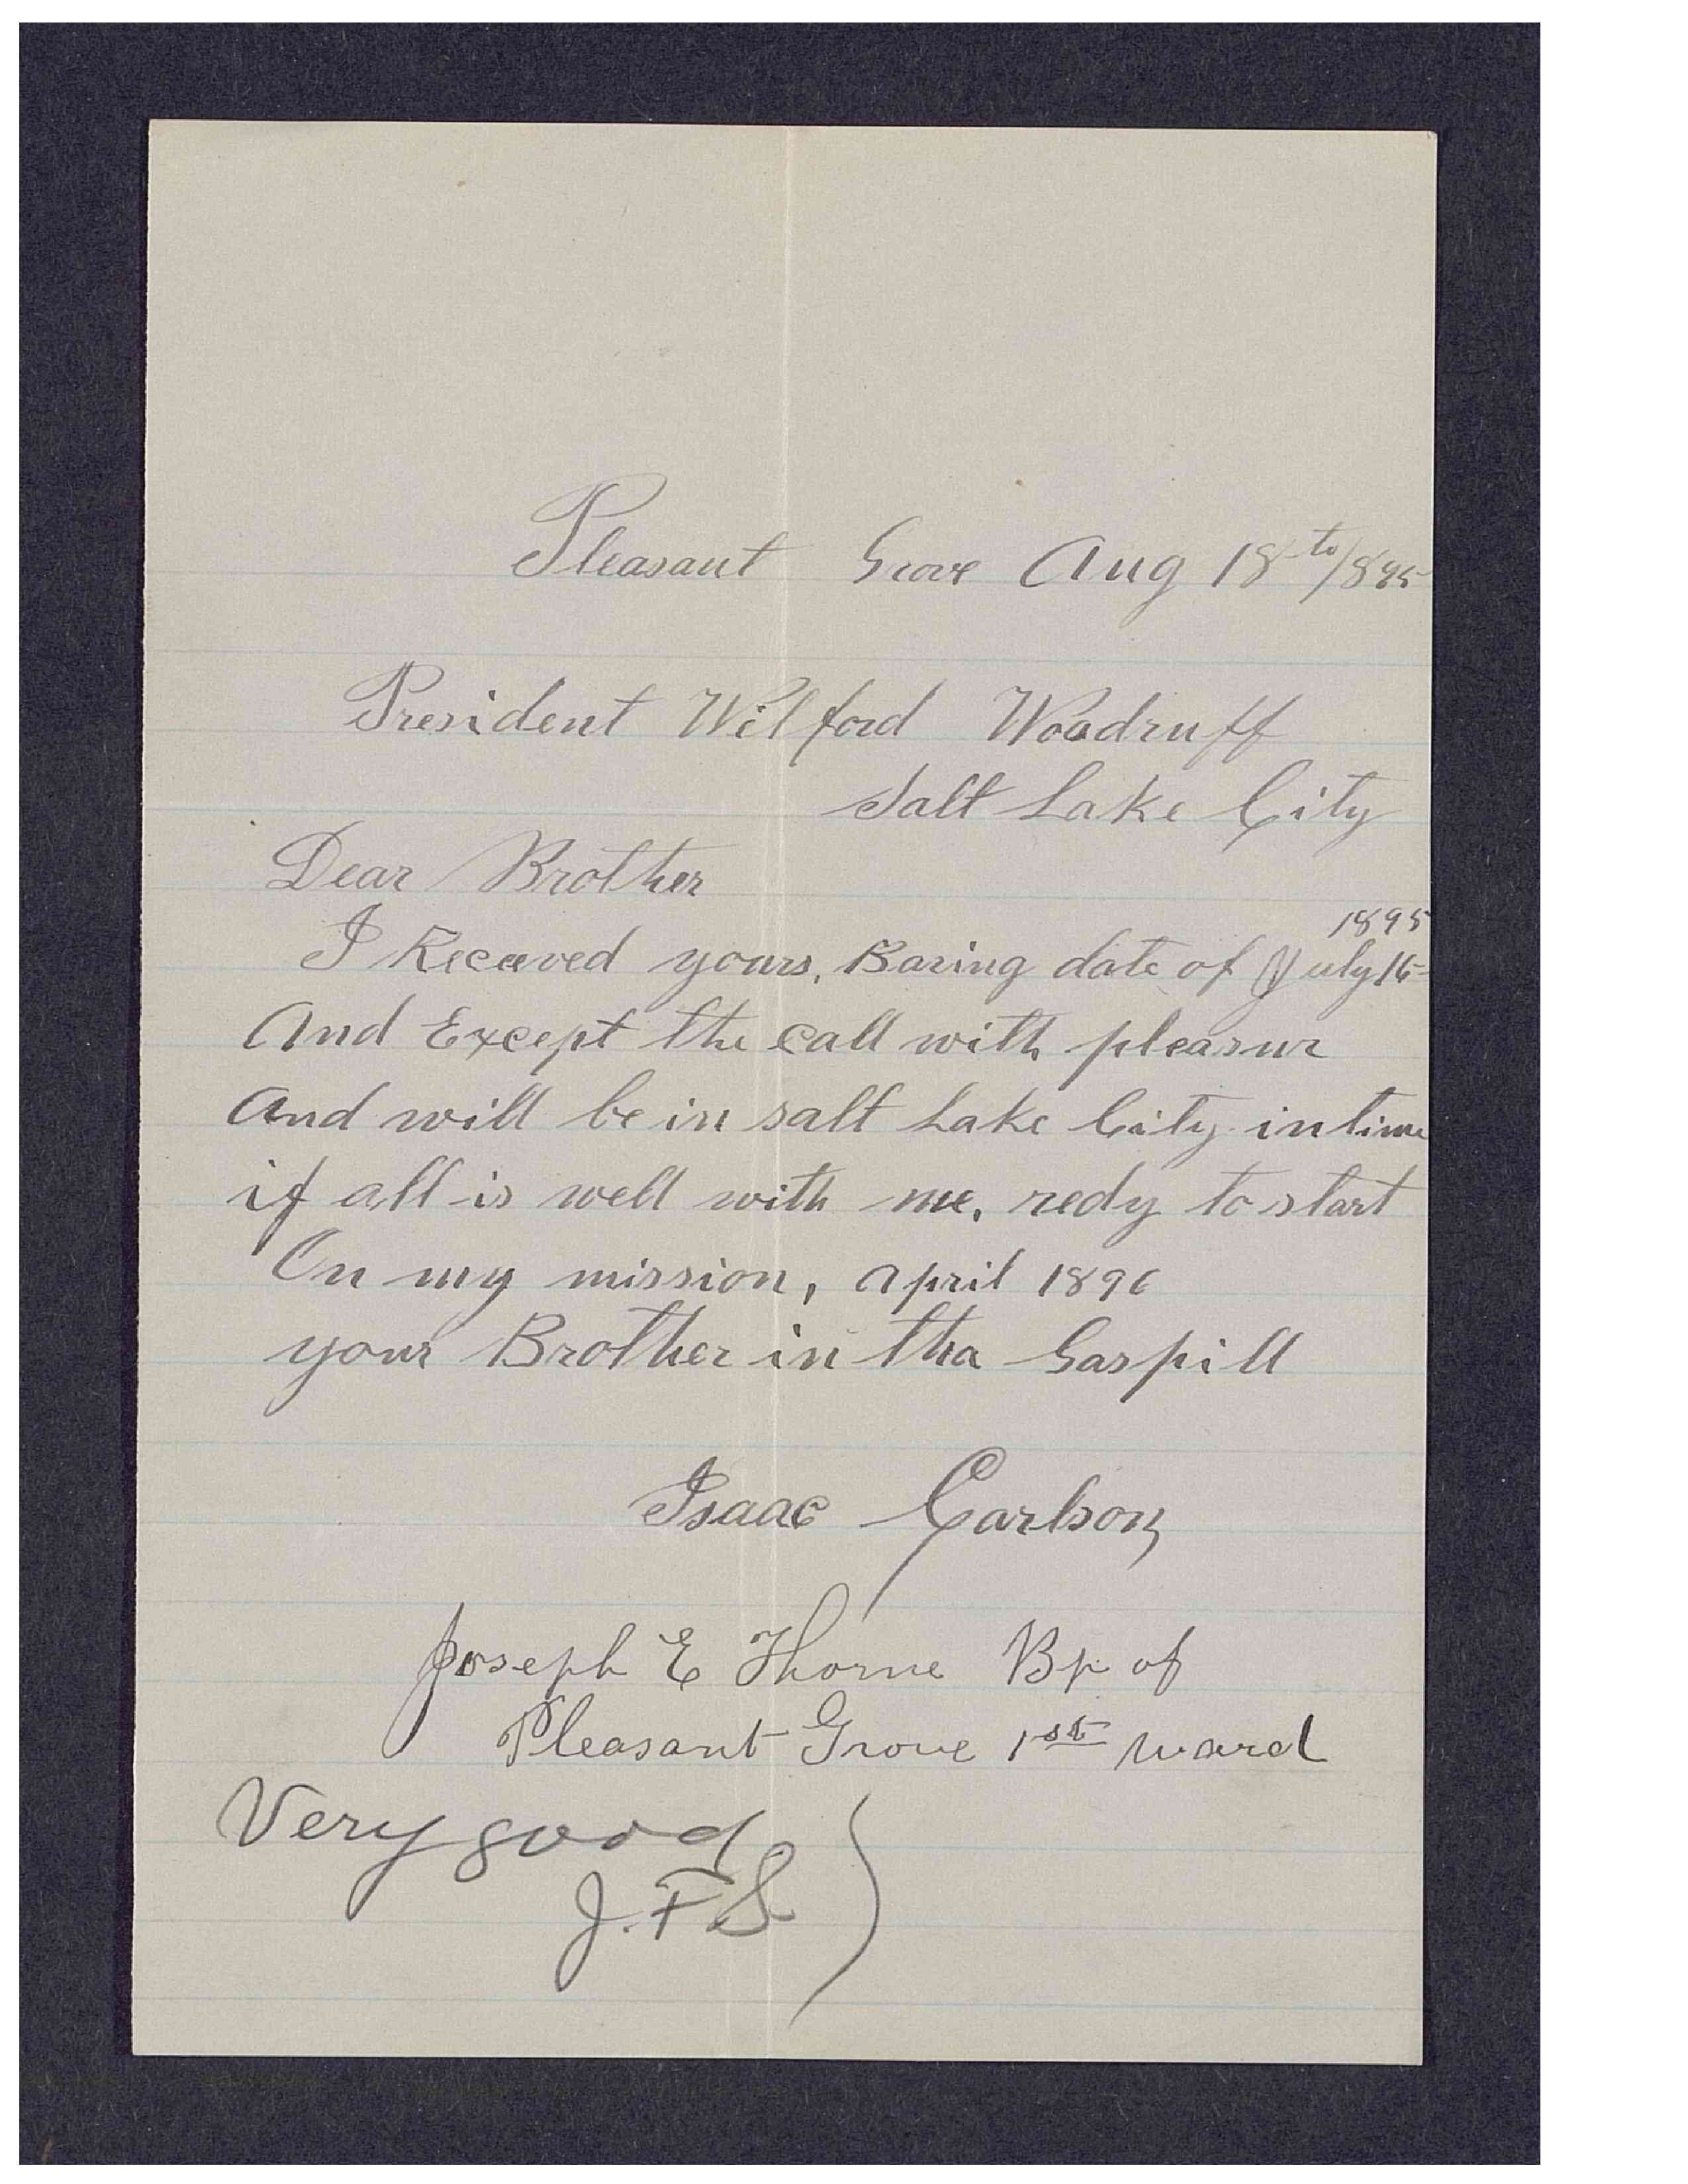 Pleasant Grove Aug 18th/895
President Wilford Woodruff
Salt Lake City
Dear Brother
1895
I Receeved yours, Baring date of July 16
And Except the call with pleasur
And will be in salt Lake City in time
if all is well with me, redy to start
On my mission, April 1896
your Brother in tha Gaspill
Isaac Carlson
Joseph E Thorne Bp of
Pleasant Grove 1st ward
Very good
J. F S